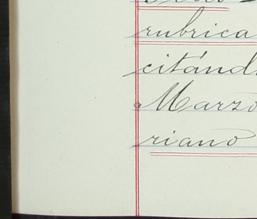 rubrica
citánd
Marzo
riano